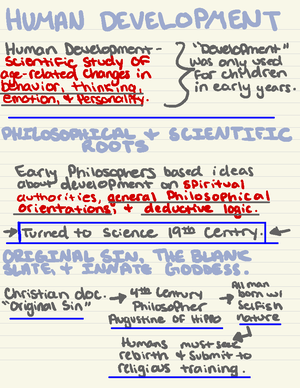 HUMAN DEVELOPMENT
Human Development -
Scientific study of
age-related changes in
behavior, thinking,
emotion, & personality.
"Development"
was only used
for children
in early years.
PHILOSOPHICAL & SCIENTIFIC
ROOTS
Early Philosophers based ideas
about development on spiritual
authorities, general Philosophical
orientations, & deductive logic.
Turned to Science 19th Centry.
ORIGINAL SIN, THE BLANK
SLATE, & INNATE GODDESS.
Christian doc.
"Original Sin"
4th Century
Philosopher
Augustine of Hippo
All man
born w/
selfish
nature
Humans must seek
rebirth & submit to
religious training.